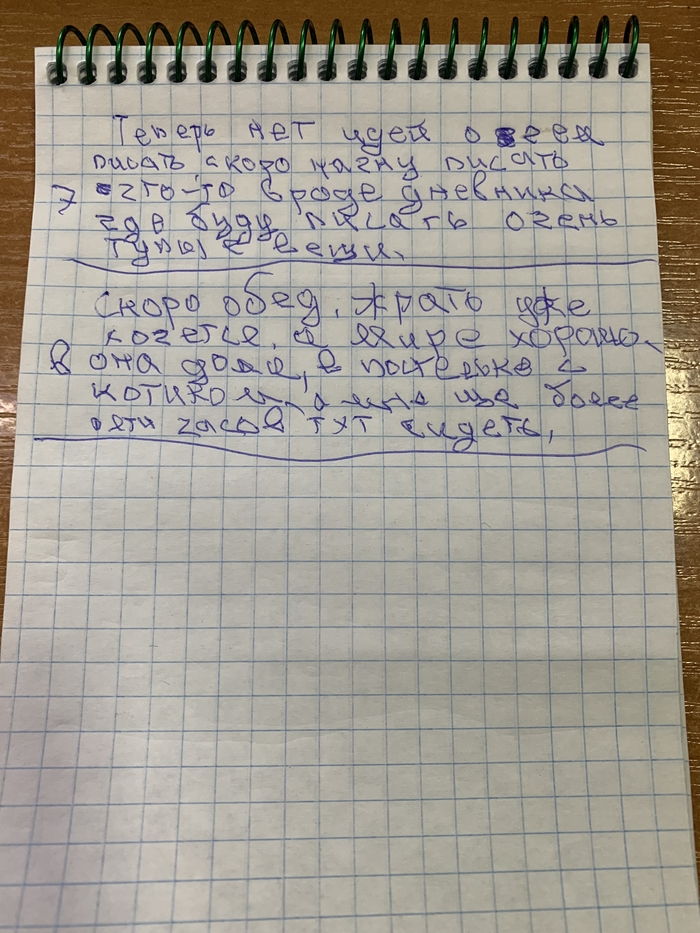 Теперь нет идей о чем
писать скоро начну писать
7 что-то вроде дневника
где буду писать очень
тупые вещи.
Скоро обед, жрать уже
хочется, а Мире хорошо.
8 она дома, в постельке с
котиком, а мне ще более
пяти часов тут сидеть,